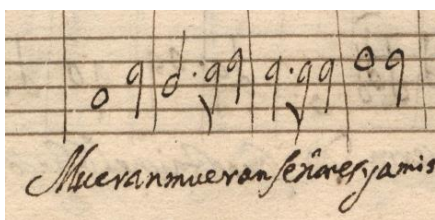 Mueran mueran señores y a mis